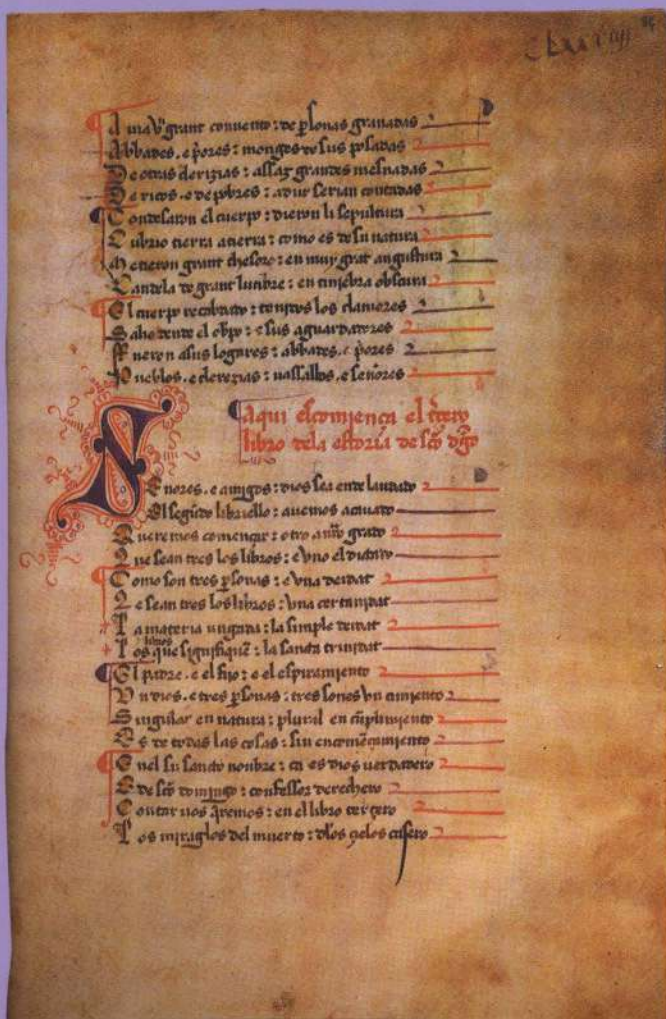 A uia y grant conuento : de psonas granadas
Abbades . e pores : monges de sus posadas
De otras clerizias : assaz grandes mesnadas
De ricos . e de pobres : adur serian contadas
Condesaron el cuerpo : dieron li sepultura
Cubrio tierra atierra : como es de su natura
Metieron grant thesoro : en muy grat angustura
Candela de grant lumbre : en tiniebra obscura
El cuerpo recabdado : tenidos los clamores
Salio dende el obpo : e sus aguardadores
Fueron asus logares : abbades . e pores
Pueblos . e clerezias : uassallos . e señores
Aqui escomjença el tcero
libro dela estoria de sco dgo
Senores . e amigos : dios sea ende laudado
El segudo libriello : auemos acauado
Queremos començar : otro a nro grado
Que sean tres los libros : e vno el dictado
Como son tres psonas : e vna deidat
Que sean tres los libros : vna certanidat
La materia ungada : la simple deidat
Los libros que signifique : la sancta trinidat
El padre . e el fijo : e el espiramiento
Vn dios . e tres psonas : tres sones vn cimiento
Singular en natura : plural en cuplimiento
Es de todas las cosas : fin e começamiento
Enel su sancto nonbre : ca es dios uerdadero
E de sco domjngo : confessor derechero
Contar uos qremos : en el libro terçero
Los miraglos del muerto :